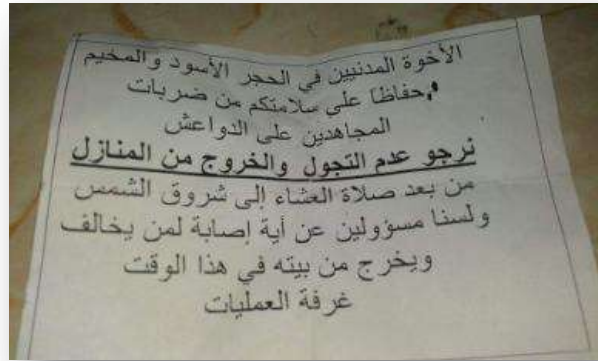 الأخوة المدنيين في الحجر الأسود والمخيم
حفاظا على سلامتكم من ضربات
المجاهدين على الدواعش
نرجو عدم التجول والخروج من المنازل
من بعد صلاة العشاء إلى شروق الشمس
ولسنا مسؤولين عن أية إصابة لمن يخالف
ويخرج من بيته في هذا الوقت
غرفة العمليات